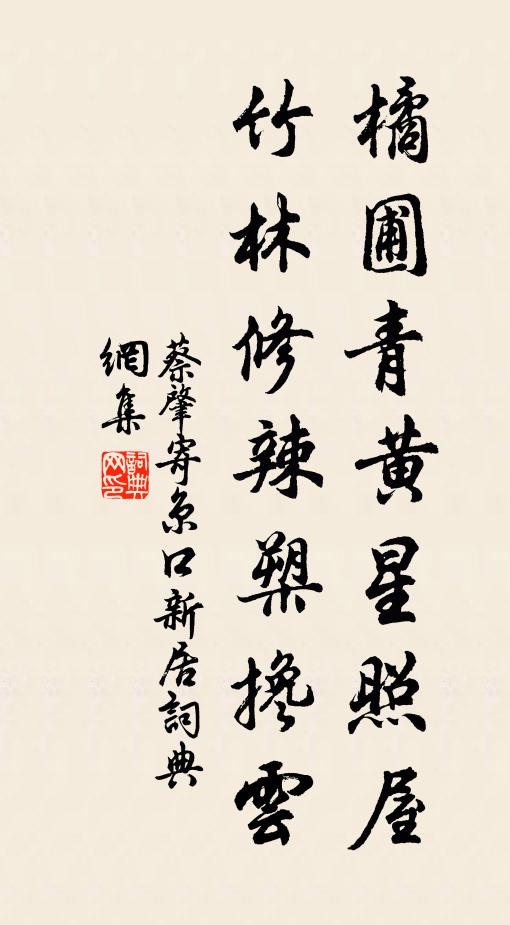 橘圃青黃星照屋
竹林修辣槊搀雲
蔡肇寄京口新居詞典
網集
詞典
网印